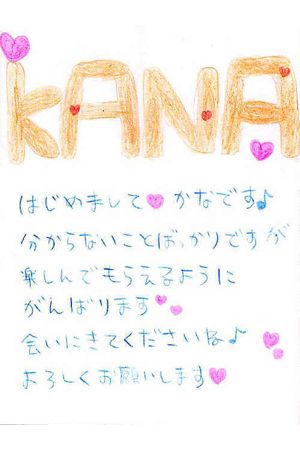 KANA
はじめまして♥かなです♪
分からないことばっかりですが
楽しんでもらえるように
がんばります♥♥
会いにきてくださいね♪
よろしくお願いします♥